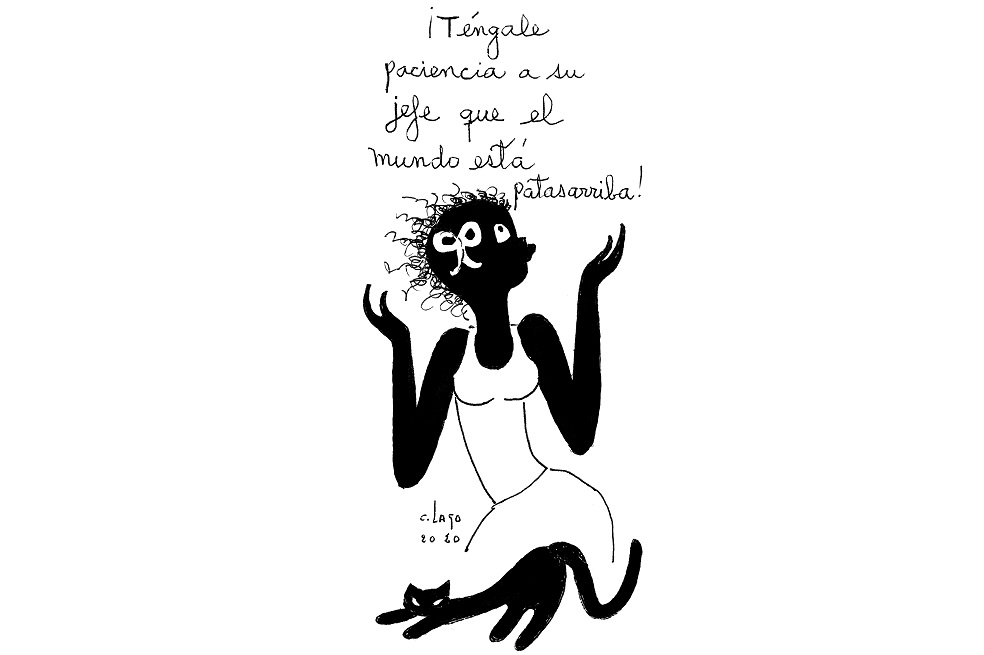 ¡Téngale
paciencia a su
jefe que el
mundo está
patasarriba!
C. LAGO
2020